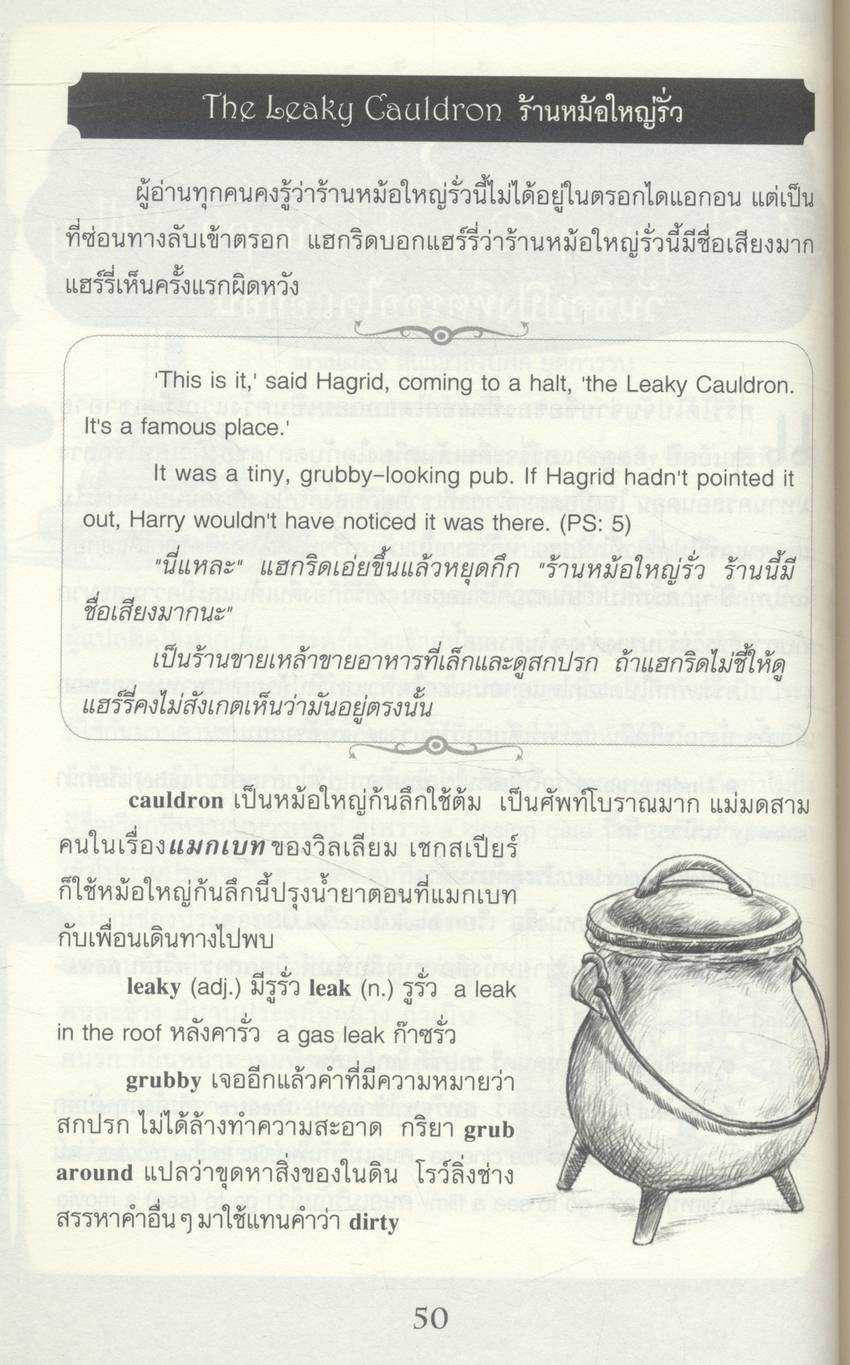 The Leaky Cauldron ร้านหม้อใหญ่รั่ว
ผู้อ่านทุกคนคงรู้ว่าร้านหม้อใหญ่รั่วนี้ไม่ได้อยู่ในตรอกไดแอกอน แต่เป็น
ที่ซ่อนทางลับเข้าตรอก แฮกริดบอกแฮร์รี่ว่าร้านหม้อใหญ่รั่วนี้มีชื่อเสียงมาก
แฮร์รี่เห็นครั้งแรกผิดหวัง
'This is it,' said Hagrid, coming to a halt, 'the Leaky Cauldron.
It's a famous place.'
It was a tiny, grubby-looking pub. If Hagrid hadn't pointed it
out, Harry wouldn't have noticed it was there. (PS: 5)
"นี่แหละ" แฮกริดเอ่ยขึ้นแล้วหยุดกึก "ร้านหม้อใหญ่รั่ว ร้านนี้มี
ชื่อเสียงมากนะ"
เป็นร้านขายเหล้าขายอาหารที่เล็กและดูสกปรก ถ้าแฮกริดไม่ชี้ให้ดู
แฮร์รี่คงไม่สังเกตเห็นว่ามันอยู่ตรงนั้น
cauldron เป็นหม้อใหญ่ก้นลึกใช้ต้ม เป็นศัพท์โบราณมาก แม่มดสาม
คนในเรื่องแมกเบทของวิลเลียม เชกสเปียร์
ก็ใช้หม้อใหญ่ก้นลึกนี้ปรุงน้ำยาตอนที่แมกเบท
กับเพื่อนเดินทางไปพบ
leaky (adj.) มีรูรั่ว leak (n.) รูรั่ว a leak
in the roof หลังคารั่ว a gas leak ก๊าซรั่ว
grubby เจออีกแล้วคำที่มีความหมายว่า
สกปรก ไม่ได้ล้างทำความสะอาด กริยา grub
around แปลว่าขุดหาสิ่งของในดิน โรว์ลิ่งช่าง
สรรหาคำอื่น ๆ มาใช้แทนคำว่า dirty
50